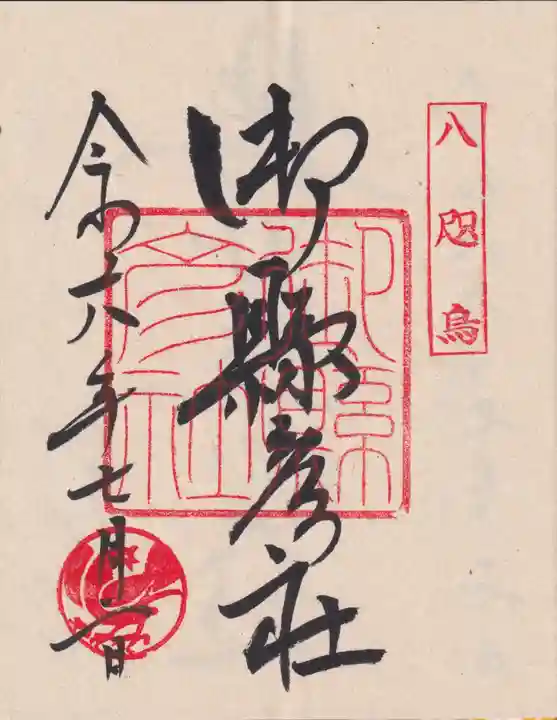 八咫烏
御縣彦社
御縣
彦社
令和六年七月二日